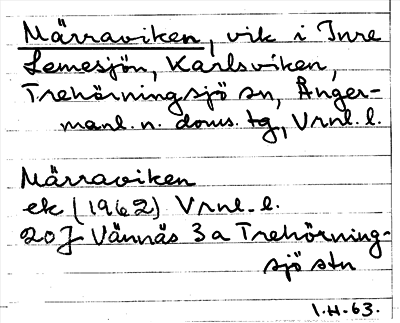 Märraviken, vik i Inre
Lemesjön, Karlsviken,
Trehörningsjö sn, Ånger-
manl. n. doms. tg, Vrnl. l.
Märraviken
ek (1962) Vrnl. l.
20J Vännäs 3a Trehörning-
sjö stn
I.H. 63.